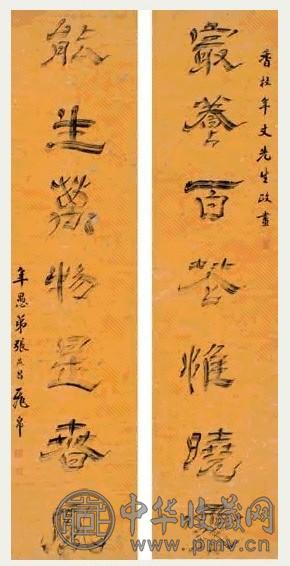 香杜年丈先生政畫
最養百惟曉
能生萬物是春風
年愚弟張飛帛
中华收藏网
www.pmv.cn